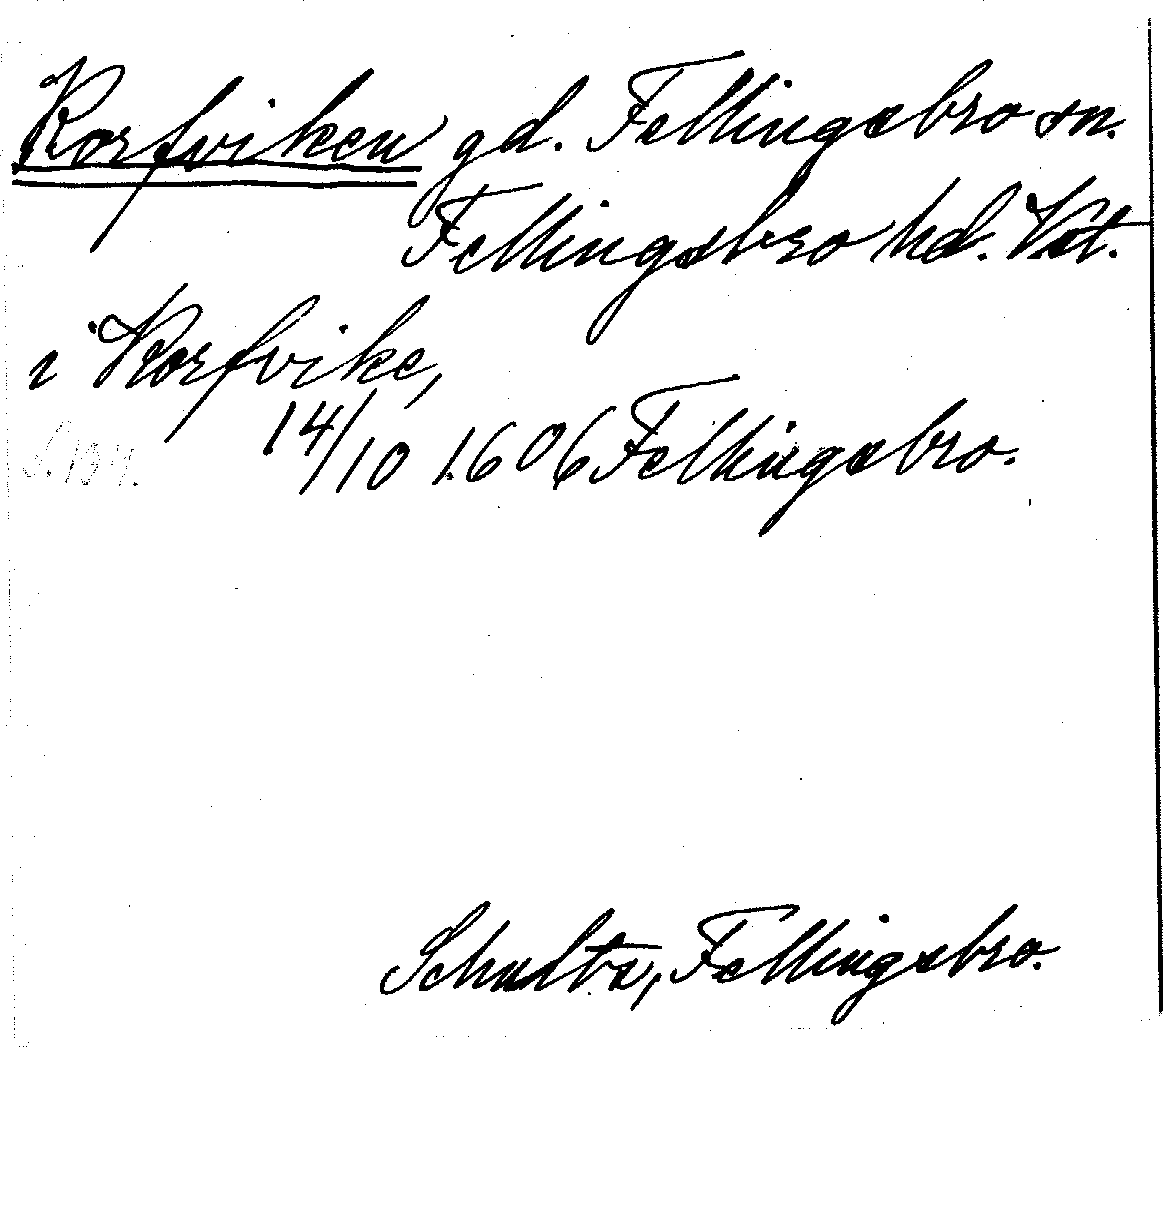 Korfviken gd. Fellingsbro sn.
Fellingsbro hd. Vst.
i Korfvike,
S. 104. 14/10 1606 Fellingsbro.
Schultz, Fellingsbro.